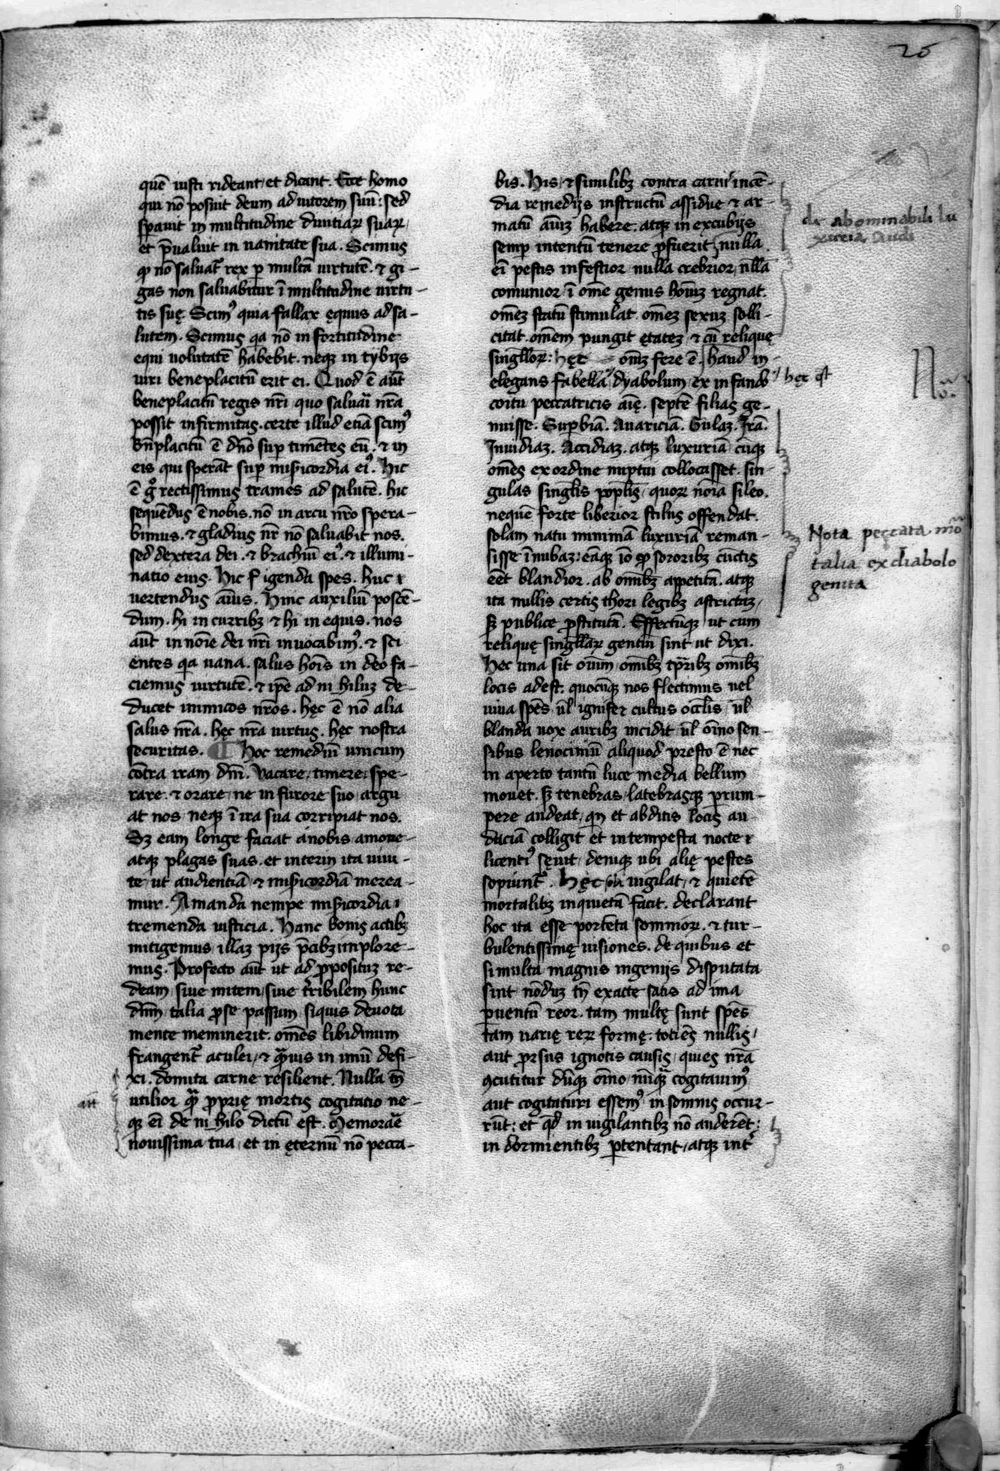 26
quē iusti rideant, et dicant. Ecce homo
qui nō posuit deum adiutorem suū: sed
spauit in multitudine diuitiaꝝ suaꝝ,
et p̄ualuit in uanitate sua. Scimus
ꝙ nō saluat᷑ rex ꝑ multā uirtutē. ⁊ gi-
gas non saluabitur ī multitudine uirtu-
tis suę. Scimꝰ quia fallax ęquus ad sa-
lutem. Scimus qa nō in fortitudine
equi uolutatē habebit. neqꝫ in tybijs
uiri beneplacitū erit ei. Quod ē aūt
beneplacitū regis nr̄i quo saluari nr̄a
possit infirmitas. certe illud etiā scimꝰ
bn̄placitū ē dn̄o suꝑ timētes eū. ⁊ in
eis qui sperāt suꝑ misericordia eiꝰ. Hic
ē gͦ rectissimus trames ad salutē. hic
sequēdus ē nobis. nō in arcu nr̄o spera-
bimus. ⁊ gladius nr̄ nō saluabit nos.
sed dextera dei. ⁊ brachiū eiꝰ. ⁊ illumi-
natio eius. Hic figenda spes. Huc ⁊
uertendus aīus. Hinc auxiliū poscē-
dum. hi in curribꝫ ⁊ hi in equis. nos
aūt in noīe dei nr̄i inuocabimꝰ. ⁊ sci
entes qa uana salus hoīs in deo fa-
ciemus uirtutē. ⁊ ip̄e ad nihiluꝫ de-
ducet inimicos nr̄os. hęc ē nō alia
salus nr̄a. hęc nr̄a uirtus. hęc nostra
securitas. Hoc remediū unicum
cōtra iram dn̄i. Vacare, timere, spe-
rare. ⁊ orare, ne in furore suo, argu
at nos, neqꝫ ī ira sua corripiat nos.
Sꝫ eam longe faciat a nobis amoue-
atqꝫ plagas suas. et interim ita uiui-
te ut audientiā ⁊ misericordiā merea-
mur. Amanda nempe misericordia,
tremenda iusticia. Hanc bonis actibꝫ
mitigemus illaꝫ pijs p̄cibꝫ implore-
mus. Profecto aūt ut ad ꝓpositūꝫ re-
deam, siue mitem, siue tr̄ribilem hunc
dn̄m talia ꝓ se passum, siquis deuota
mente meminerit. omēs libidinum
frangent᷑ aculei, ⁊ qāuis in imū defi-
xi. domita carne resilient. Nulla tn̄
utilior qā ꝓprię mortis cogitatio ne-
qꝫ ei de nihilo dictū est. Memorare
nouissima tua, et in ęternū nō pecca-
bis. His, ⁊ similibꝫ contra carnis incē-
dia remedijs instructū assidue ⁊ ar-
matū aīuꝫ habere, atqꝫ in excubijs
semꝑ intentū tenere ꝓfuerit, nulla
ei pestis infestior nulla crebrior, nllā
comunior ī ome genus hoīuꝫ regnat.
omēꝫ statū stimulat. omeꝫ sexuꝫ solli-
citat. omēm pungit ętateꝫ ⁊ cū relique
singlloꝝ: hęc omīꝫ fere ē. haud in-
elegans fabella, dyabolum, ex infando
coitu peccatricis aīę. septē filias ge-
nuisse. Suꝑbiā. Auariciā. Gulaꝫ. Irā.
Inuidiaꝫ. Accidiaꝫ. atqꝫ luxuriā, cūqꝫ
omēs ex ordine nuptui collocasset. sin-
gulas singlis popl̄is, quoꝝ noīa sileo.
neque forte liberior stilus offendat.
solam natu minimā luxuriā reman-
sisse īnubaꝫ: eāqꝫ iō ꝙ sororibꝫ cūctis
eēt blandior. ab omībꝫ apetitā. atqꝫ
ita nullis certis thori legibꝫ astrictaꝫ,
sꝫ publice ꝓstitutā. Effectūqꝫ ut cum
reliquę singllaꝝ gentiū sint ut dixi.
Hec una sit oīum omībꝫ tp̄ribꝫ omībꝫ
locis adest. quocūqꝫ nos flectimus uel
uiua spēs, ul̄ ignis et cultus ocl̄is, ul̄
blanda uox auribꝫ incidit ul̄ oīno sen-
sibus lenociniū aliquod presto ē nec
in aperto tantū luce media bellum
mouet. sꝫ tenebras, latebrasqꝫ prum-
pere audeat, qn et abditis locis au-
daciā colligit et in tempesta nocte ⁊
licentiꝰ sęuit, deniqꝫ ubi alię pestes
sopiunt᷑. Hęc uigilat, ⁊ quietē
mortalibꝫ inquietā facit. declarant
hoc ita esse portēta somnioꝝ, ⁊ tur-
bulentissimę uisiones. de quibus et
si multa magnis ingenijs disputata
sint nōduꝫ tn̄ exacte satis ad ima
puentū reor. tam multę sunt spēs
tam uarię reꝝ formę: totiēs nullis,
aut ꝓrsus ignotis causis, quies nr̄a
ꝯcutitur dūqꝫ oīno nūqꝫ cogitauimꝰ
aut cogitaturi essemꝰ in somnis occur-
rūt: et qd̄ in uigilantibꝫ nō auderēt:
in dormientibꝫ ꝑtentant, atqꝫ int᷑
de abominabili lu
xuria audi
hęc ē
Nota peccata mo
talia ex diabolo
genita